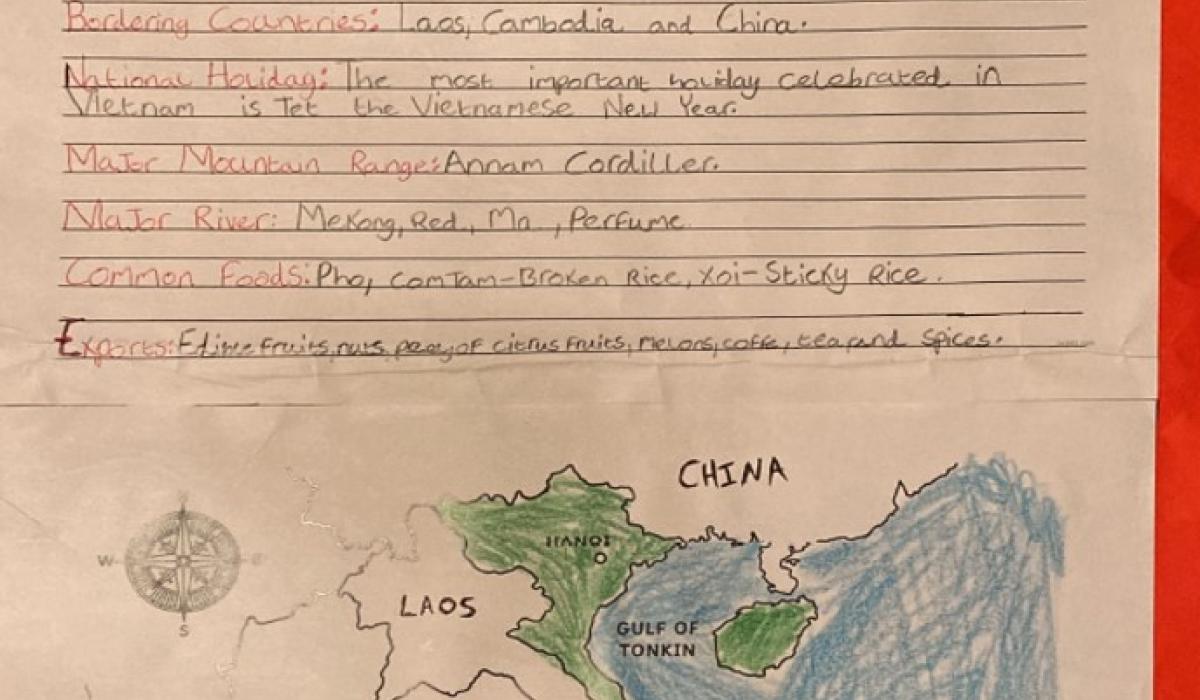 Bordering Countries: Laos, Cambodia and China.
National Holiday: The most important holiday celebrated in
Vietnam is Tet the Vietnamese New Year.
Major Mountain Range: Annam Cordiller.
Major River: Mekong, Red, Ma, Perfume
Common Foods: Pho, ComTam-Broken Rice, Xoi-Sticky Rice.
Exports: fruits, nuts, of citrus fruits, melons, coffe, tea, and spices.
CHINA
HANOI
W
E
LAOS
S
GULF OF
TONKIN